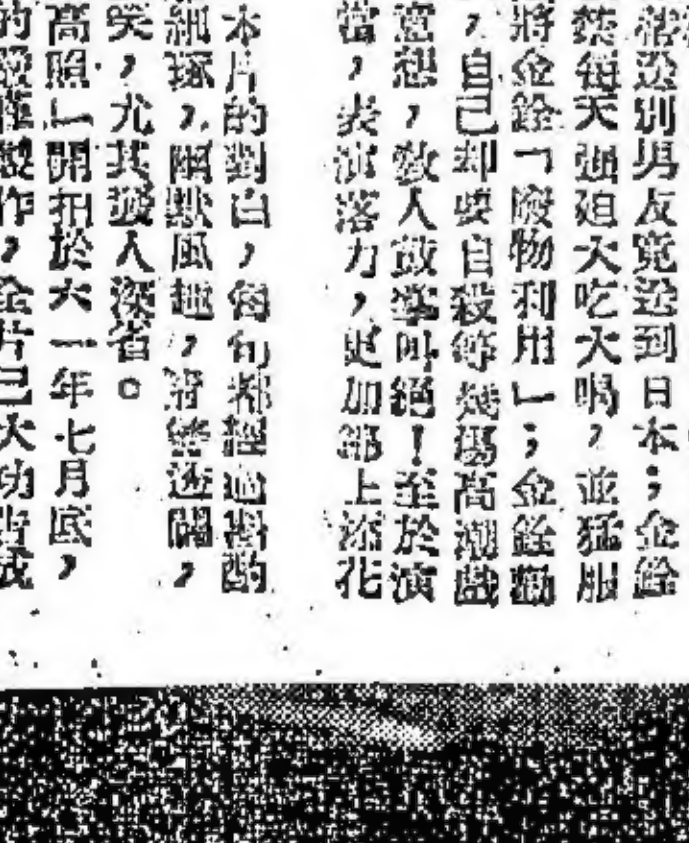 送別男友竟送到日本；金銓
每天強迫大吃大喝，並猛服
將金銓「廢物利用」；金銓勸
，自己卻要自殺等幾場高潮戲
意想，教人鼓掌叫絕！至於演
當，表演落力，更加錦上添花
本片的對白，每句都經過斟酌
細琢，幽默風趣，透闢，
笑，尤其發人深省。
高照」開拍於六一年七月底，
的製作，全片已大功告成